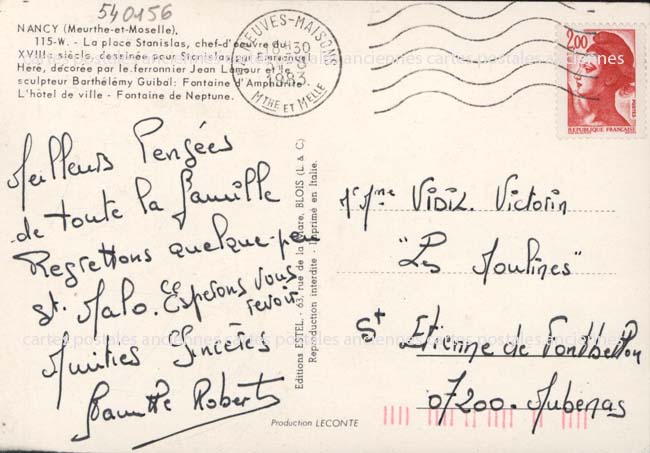 540156
NANCY (Meurthe-et-Moselle).
115-W. - La place Stanislas, chef-d'œuvre du
XVIIIe siècle, dessinée pour Stanislas par Emmanuel
Héré, décorée par le ferronnier Jean Lamour et le
sculpteur Barthélémy Guibal: Fontaine d'Amphitrite
L'hôtel de ville - Fontaine de Neptune.
NEUVES-MAISONS
1983
MTHE ET MELLE
2,00
POSTES
REPUBLIQUE FRANÇAISE
Meilleurs Pensées
de toute la famille
Regrettons quelque peu
St. Malo. Espérons vous
revoir
Amitiés Sincères
Famille Roberts
Editions ESTEL - 63, rue de la Gare, BLOIS (L. & C.)
Reproduction interdite - Imprimé en Italie.
Mr Mme VIDIL Victorin
"Les Moulines"
St Etienne de Fontbellon
07200 - Aubenas
Production LECONTE
cartes postales anciennes cartes postales anciennes
cartes postales anciennes cartes postales anciennes